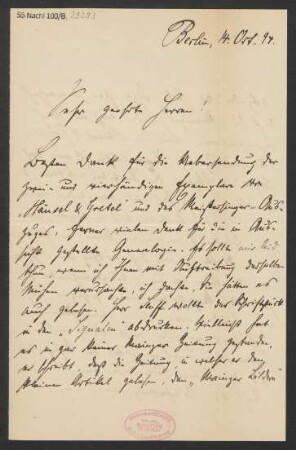 55 Nachl 100/B,
Berlin, 14. Oct. 94.
Sehr geehrte Herren!
Besten Dank für die Uebersendung der
zwei- und vierhändigen Exemplare von
Hänsel & Gretel und des Meistersinger-Aus-
zuges, ferner vielen Dank für die in Aus-
sicht gestellte Genealogie. Es sollte mir leid
thun, wenn ich Ihnen mit Auftreibung derselben
Mühen verursachen, ich dachte, Sie hätten es
auch gelesen. Herr wollte das Schriftstück
in den „Signalen abdrucken. Vielleicht hat
es in gar keiner Mainzer Zeitung gestanden,
er schreibt, daß die Zeitung, in welcher er den
kleinen Artikel gelesen, den „Mainzer